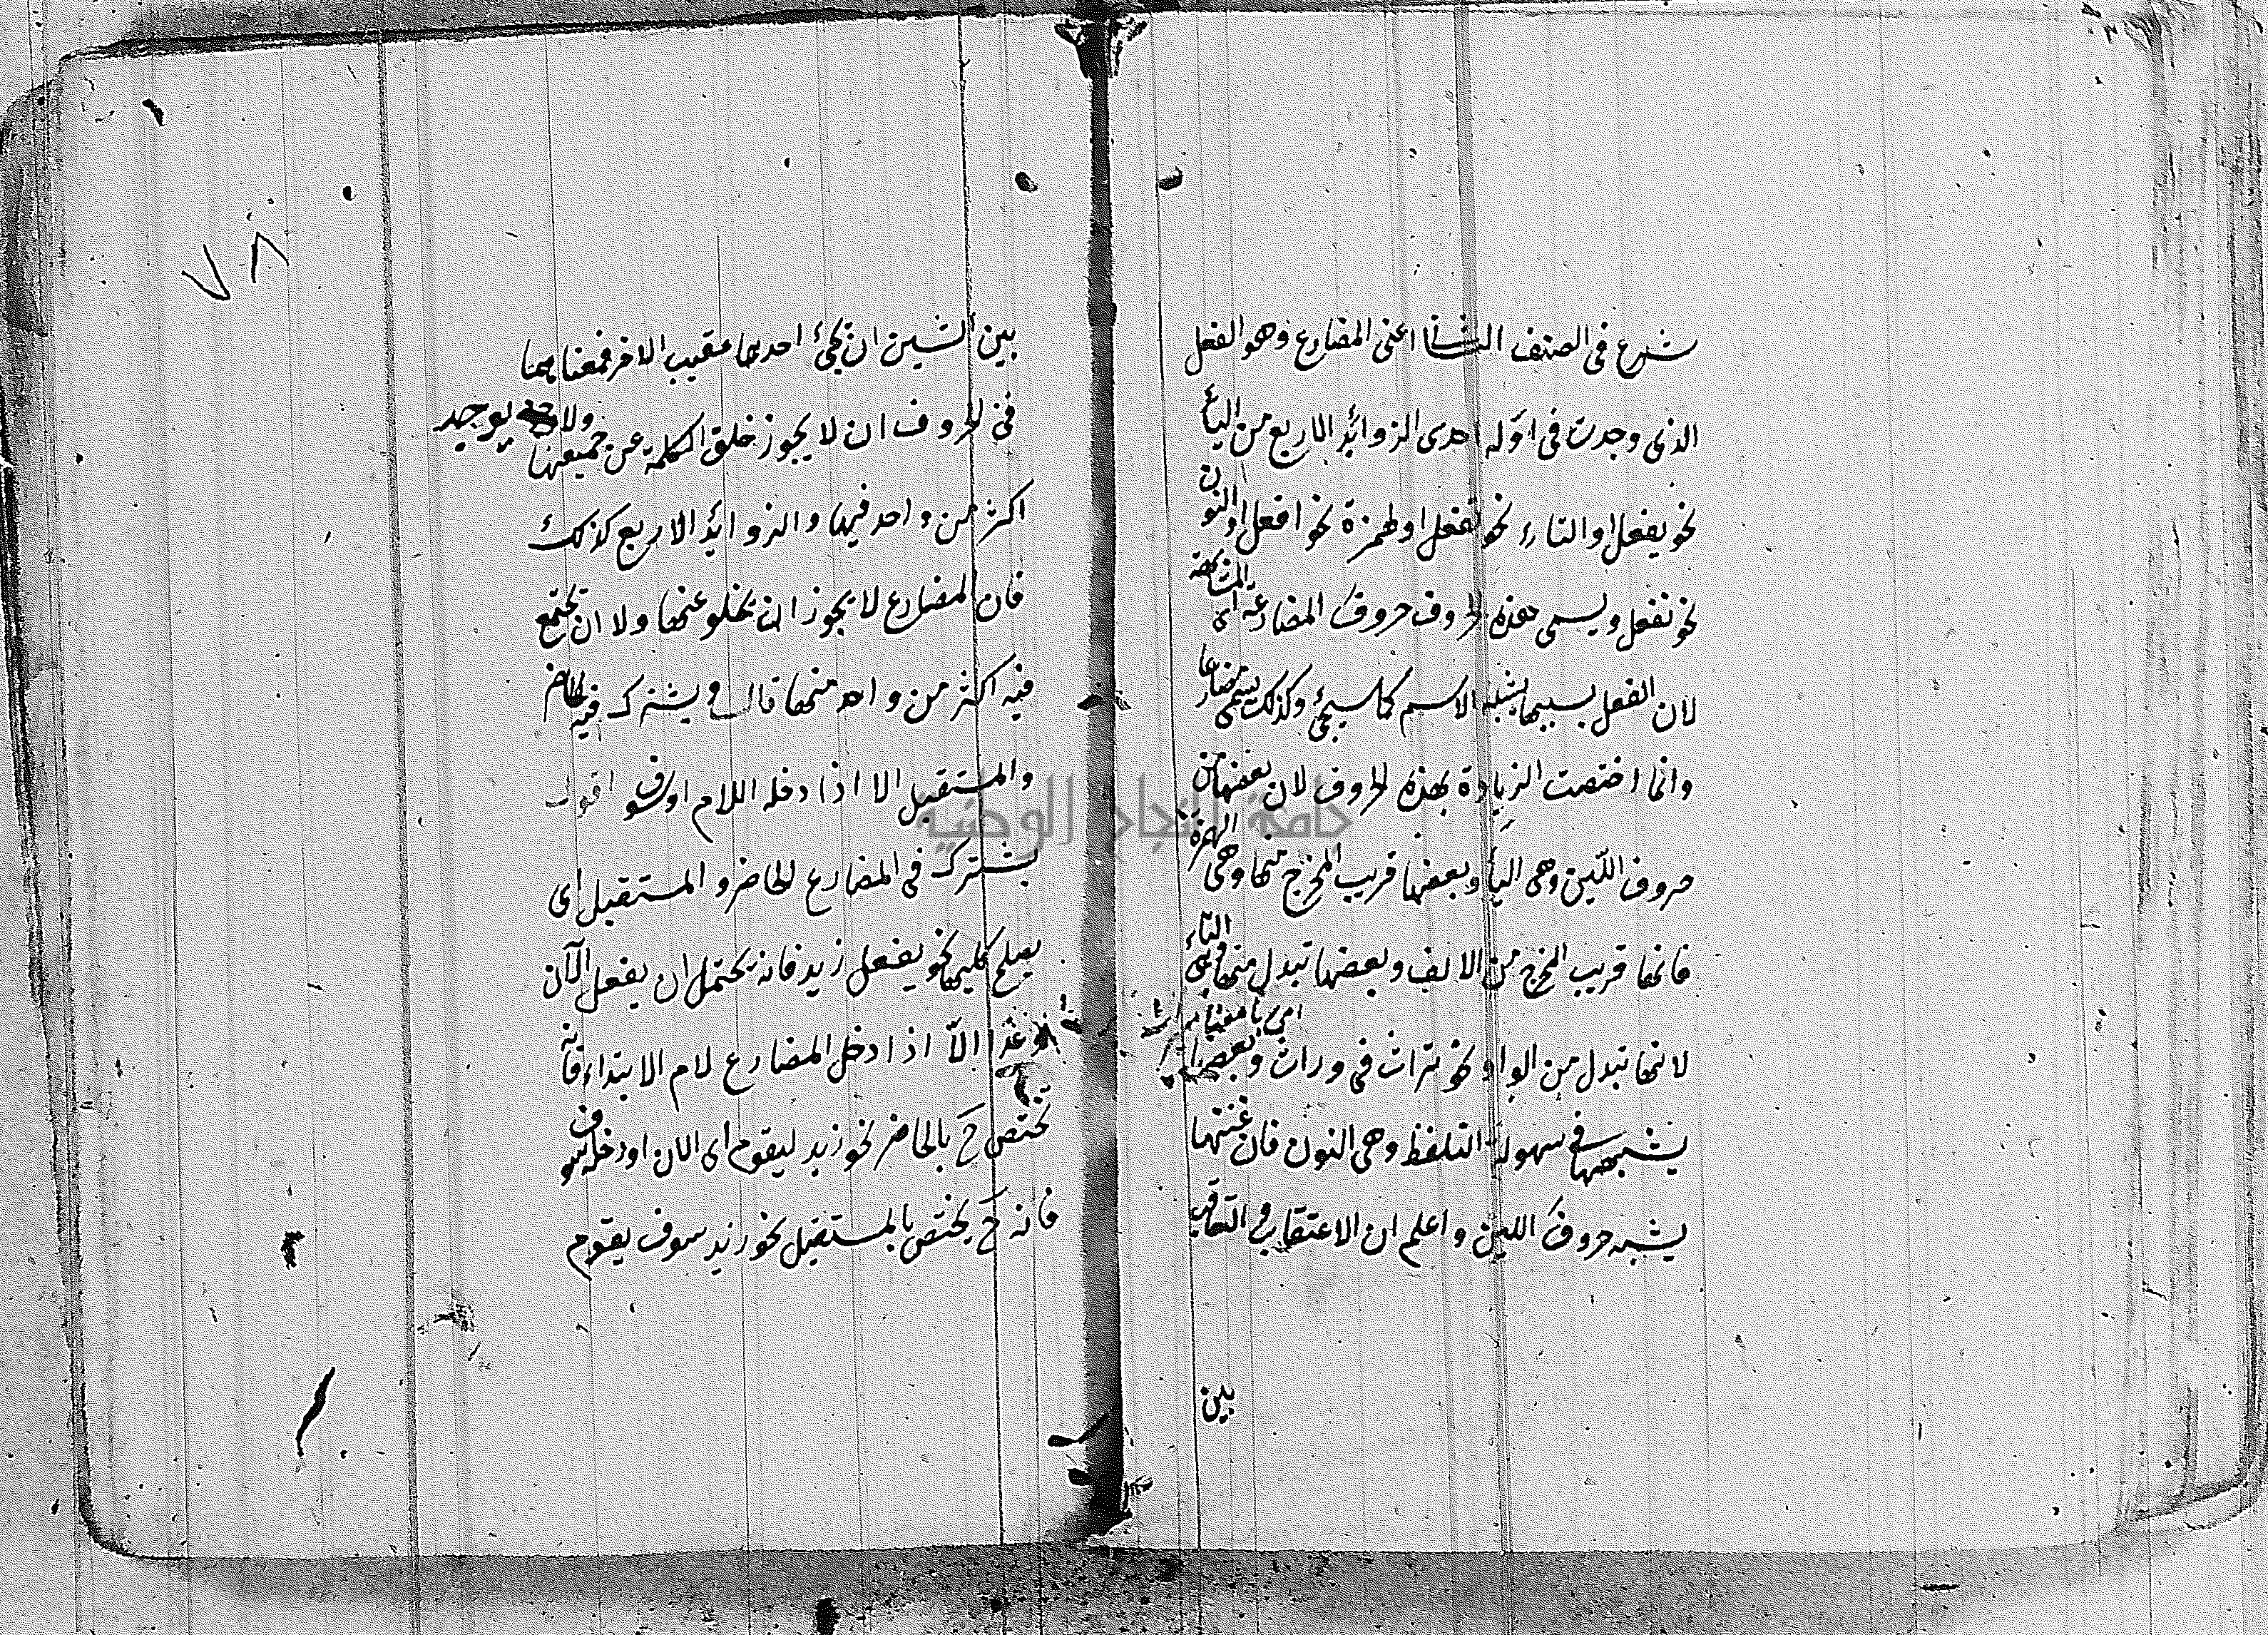 شرع فى الصنف الثانى اعنى المضارع وهو الفعل
الذى وجدت فى اوله احدى الزوائد الاربع من الياء
نحو يفعل او التاء نحو تفعل او الهمزة نحو افعل او النون
نحو نفعل ويسمى هذه الحروف حروف المضارعة اى المشابهة
لان الفعل بسببها يشبه الاسم كما سيجئ وكذلك يسمى مضارعا
وانما اختصت الزيادة بهذه الحروف لان بعضها من
حروف اللين وهى الياء وبعضها قريب المخرج منها وهى الهمزة
فانها قريب المخرج من الالف وبعضها تبدل منها وهى التاء
لانها تبدل من الواو نحو تراث فى وراث وبعضها
يشبهها فى سهولة التلفظ وهى النون فان غنتها
يشبه حروف اللين واعلم ان الاعتقاب والتعاقب
بين
٧٨
بين الشيئين ان يجئ احدهما عقيب الاخر فمعناه هنا
فى الحروف ان لا يجوز خلو الكلمة عن جميعها ولا يوجد
اكثر من واحد فيها والزوائد الاربع كذلك
فان المضارع لا يجوز ان يخلو عنها ولا ان تجتمع
فيه اكثر من واحد منها قال ويشترك فيه الحاضر
والمستقبل الا اذا دخله اللام او سوف اقول
يشترك فى المضارع الحاضر والمستقبل اى
يصلح لكليهما نحو يفعل زيد فانه يحتمل ان يفعل الآن
او غدا الّا اذا دخل المضارع لام الابتداء فانه
تختص ح بالحاضر نحو زيد ليقوم اى الان او دخله سوف
فانه ح يختص بالمستقبل نحو زيد سوف يقوم
جامعة النجاح الوطنية